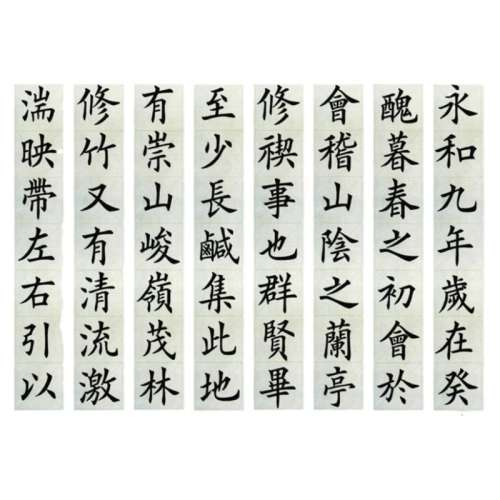 永和九年歲在癸
醜暮春之初會於
會稽山陰之蘭亭
修禊事也群賢畢
至少長鹹集此地
有崇山峻嶺茂林
修竹又有清流激
湍映帶左右引以